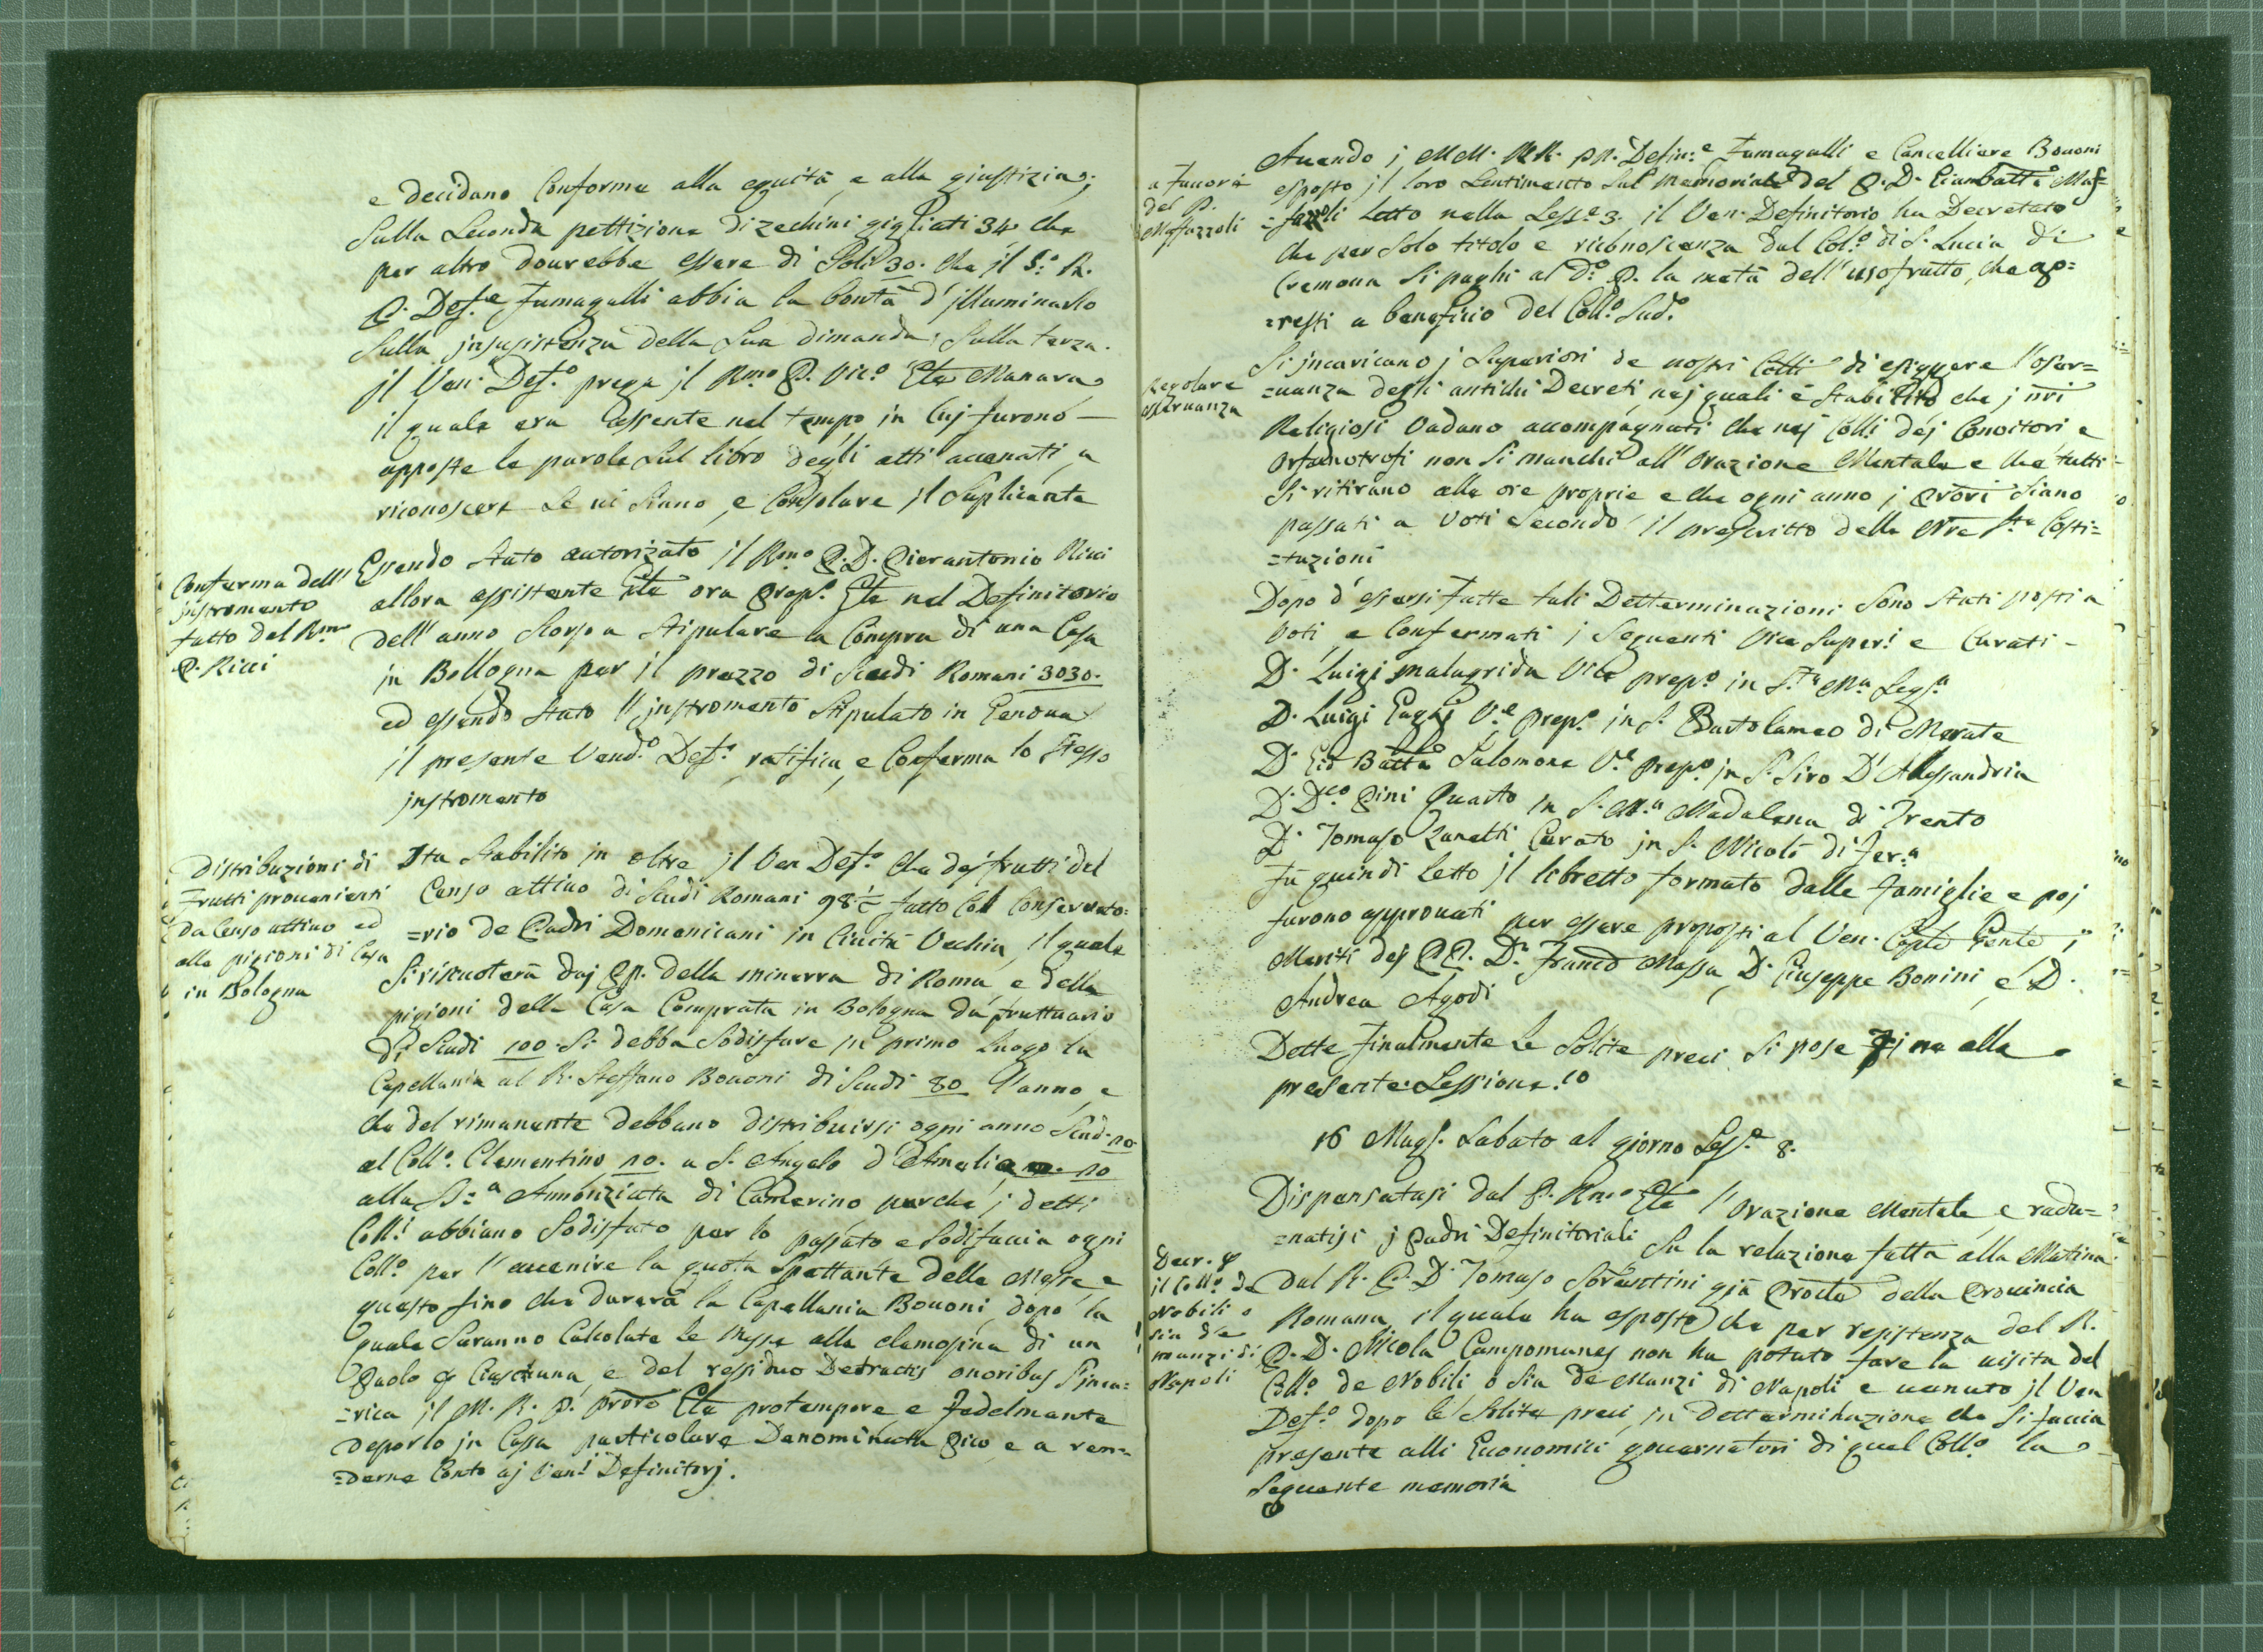 e decidano Conforme alla equità e alla giustizia;
Sulla Seconda pettizione di zechini gigliati 34 che
per altro dourebbe essere di Soli 30. che il
P. Def.e Fumagalli abbia la bontà d'jlluminarlo
Sulla jnsusistenza della Sua dimanda; Sulla terza.
jl Ven. Def.o prega jl Rmo P. Vic.o Gle Manara
il quale era assente nel tempo in Cuj furono
apposte le parole Sul libro degli atti accenati a
riconoscere Se ui Siano, e Consolare jl Suplicante
Conferma dell'
jnstromento
fatto dal Rmo
P. Ricci
Essendo Stato autorizato jl Rmo P. D. Pierantonio Ricci
allora assistente Gle ora Prep.o Gle nel Definitorio
dell'anno Scorso a Stipulare la Compra di una Casa
in Bollogna per jl prezzo di Scudi Romani 3030.
ed essendo Stato l'jnstromento Stipulato in Genoua
jl presente Vend.o Def.o ratifica, e Conferma lo Stesso
jnstromento
Distribuzioni di
Frutti prouenienti
da Censo attiuo ed
alle pigioni di Casa
in Bologna
Sta Stabilito in oltre jl Ven Def.o che dej frutti del
Censo attiuo di Scudi Romani 98 fatto Col Conseruato=
=rio de Padri Domenicani in Ciuità Vechia, il quale
Si riscuoterà daj PP. della minerva di Roma, e della
pigioni della Casa Comprata in Bologna da fruttuario
di Scudi 100 Si debba Sodisfare jn primo luogo la
Capellania al R. Steffano Bouoni di Scudi 80 l'anno, e
che del rimanente debbano distribuirsi ogni anno Scud. 10.
al Coll.o Clementino 10. a S. Angelo d'Amelia 10
alla SS.a Annonziata di Camerino perche j detti
Coll.i abbiano Sodisfato per lo passato e Sodisfaccia ogni
Coll.o per l'auenire la quota Spettante delle Messe, e
questo fino che durerà la Capellania Bouoni, dopo la
quale Saranno Calcolate le Messe alla elemosina di un
Paolo Ciascuna, e del residuo Detractis onoribus
=rica jl M. R. P. Prore Gle protempore e fedelmente
deporlo jn Cassa particolare Denominata Pico e a ren=
=derne Conto aj Ven.i Definitorj.
a fauore
del P.
Maffazzoli
Auendo j MM. RR. PP. Defin.e Fumagalli e Cancelliere Bouoni
esposto jl loro Sentimento Sul Memoriale del P. D. Giambatt.a Maf=
=fazzoli Letto nella Sess.e 3. jl Ven. Definitorio ha Decretato
che per Solo titolo e riconoscenza dal Col.o di S. Lucia di
Cremona Si paghi al D.o P. la metà dell'usofrutto, che ap=
=resti a beneficio del Coll.o Sud.o
regolare
osseruanza
Si jncaricano j Superiori de nostri Colli di esiggere l'osser=
=uanza degli antichi Decreti nej quali è Stabilito che j nri
Religiosi Vadano accompagnati che nej Coll.i dej Conuitori e
Orfanotrofi non Si manchi all'Orazione Mentale e che tutti
Si ritirano alle ore proprie e che ogni anno j Prori Siano
passati a Voti Secondo il prescritto della Nre S.te Costi=
=tuzioni
Dopo d'essersi Fatte tali Detterminazioni Sono Stati posti a
Voti e Confermati j Seguenti Vice Super.i e Curati-
D. Luigi Malagrida Vice prep.o in S.ta M.a Seg.a
D. Luigi Gaghi V.e Prep.o in S. Bartolameo di Merate
D. Gio Batta Salomone V.e Prep.o jn S. Siro D'Alessandria
D. D.co Pini Quarto in S. M.a Madalena di Trento
D. Tomaso Zanetti Curato jn S. Nicolò di Fer.a
Fù quindi Letto jl libretto formato dalle famiglie e poj
furono approuati per essere proposti al Ven. Caplo Gente j
Meriti dej PP. D. Franco Massa, D. Giuseppe Bonini, e D.
Andrea Agodi
Dette finalmente le Solite preci Si pose Fine alla
presente Sessione.
16 Mag. Sabato al giorno Ses.e 8.
Decr. p
il Coll.o de
Nobili o
sia de
manzi di
Napoli
Dispensatasi dal P. Rmo Gle l'Orazione Mentale, e radu=
=natisi j Padri Definitoriali Su la relazione fatta alla Matina
dal R. P. D. Tomaso Sorrentini già Procle della Prouincia
Romana, il quale ha esposto che per resistenza del R.
P. D. Nicola Campomanes non ha potuto fare la uisita del
Coll.o de Nobili o Sia de Manzi di Napoli e uenuto jl Ven
Def.o dopo le Solite preci, in Detterminazione che Si faccia
presente alli Economici gouernatori di quel Coll.o la
Seguente memoria